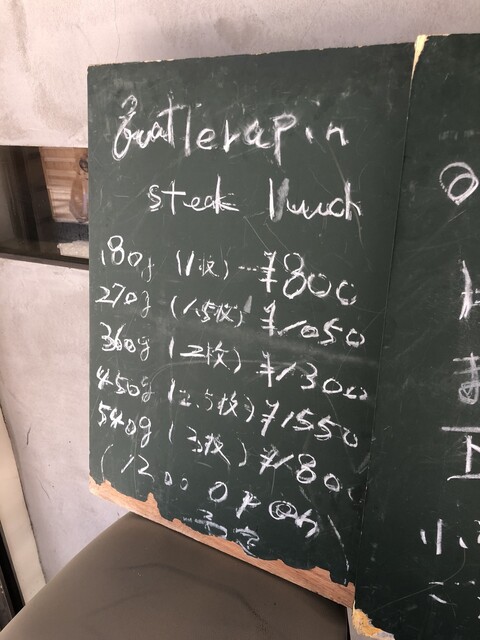 steak lunch
180g (1枚)…¥800
270g (1.5枚) ¥1050
360g (2枚) ¥1300
450g (2.5枚) ¥1550
540g (3枚) ¥1800
(1200 OPEN
予定